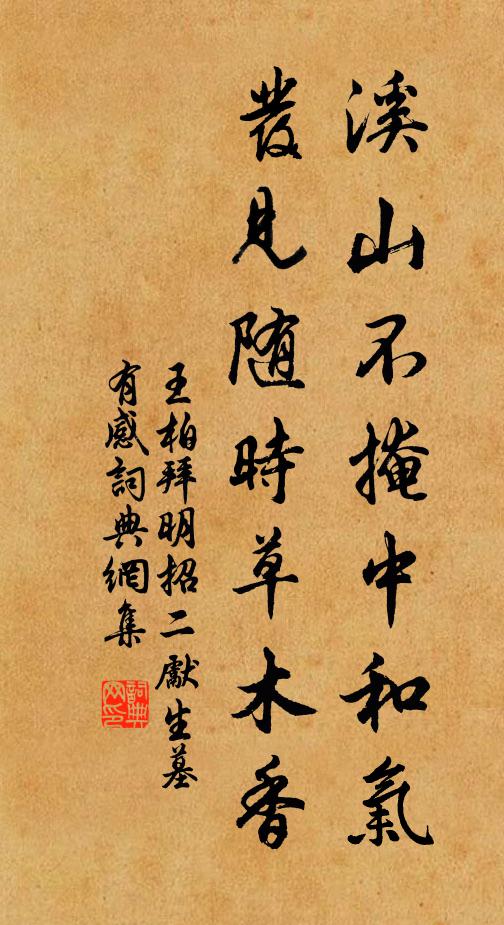 溪山不掩中和氣
發見随時草木香
王柏拜明招二獻生墓
有感詞典網集
詞典网印